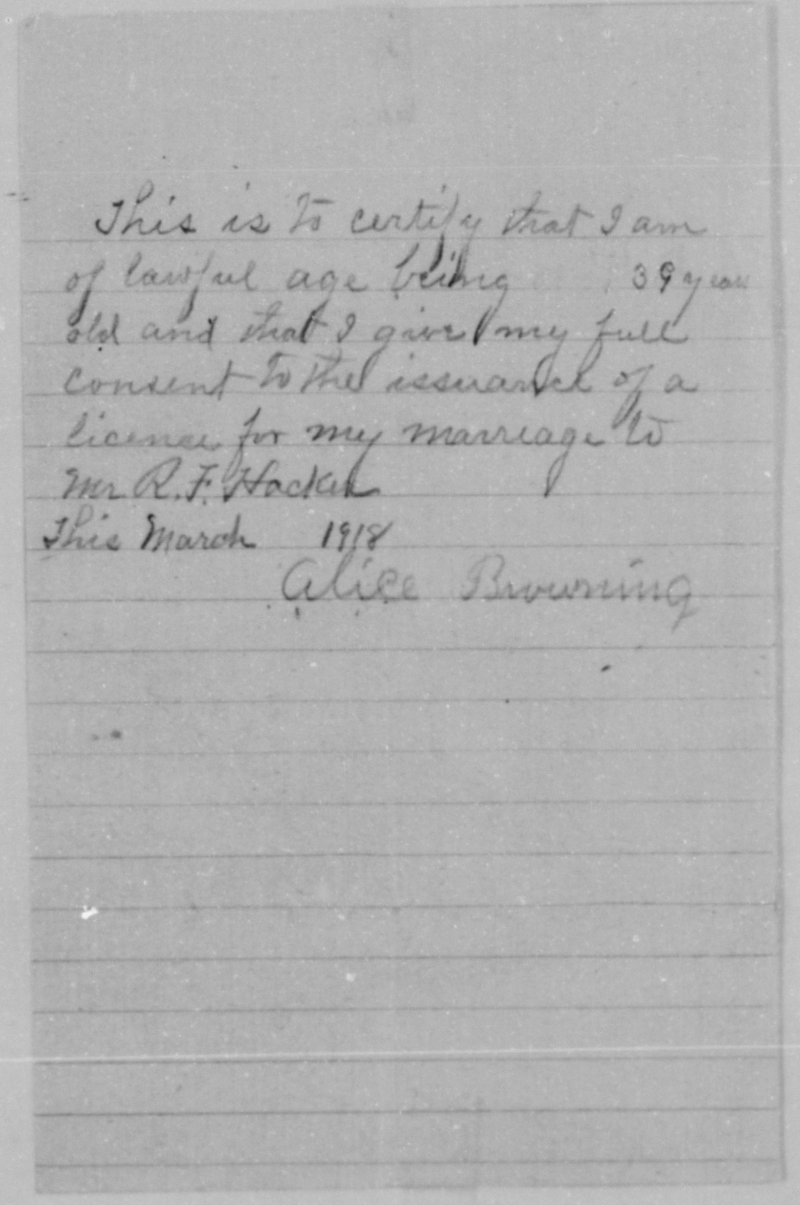 This is to certify that I am
of lawful age being 39 years
old and that I give my full
consent to the issuance of a
licence for my marriage to
Mr R. F. Hacker
This March 1918
Alice Browning